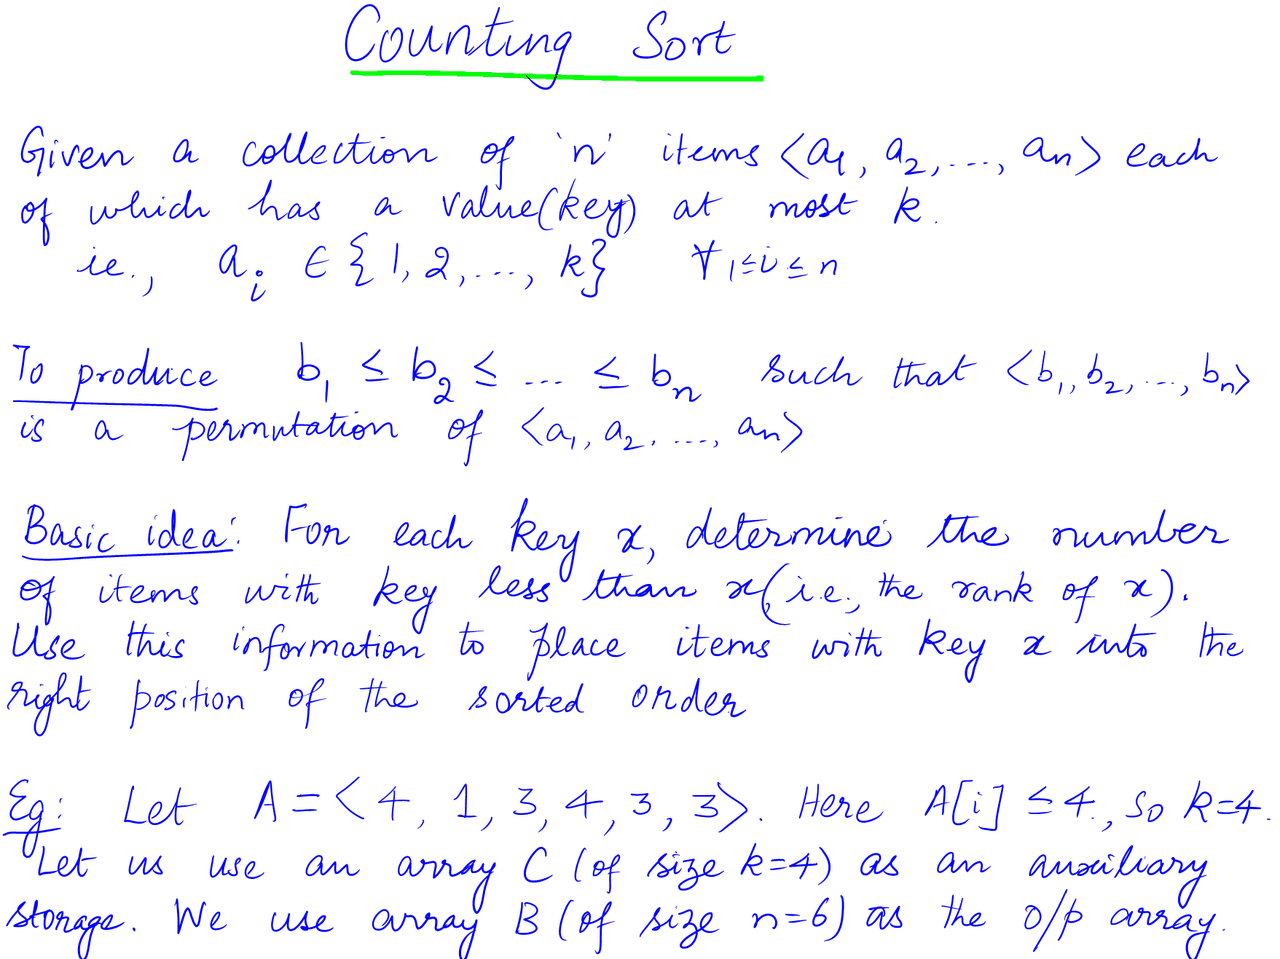 Counting Sort
Given a collection of 'n' items <a₁, a₂, ..., aₙ> each
of which has a value(key) at most k.
ie., aᵢ ∈ {1, 2, ..., k} ∀ 1≤i≤n
To produce b₁ ≤ b₂ ≤ ... ≤ bₙ such that <b₁, b₂, ..., bₙ>
is a permutation of <a₁, a₂, ..., aₙ>
Basic idea: For each key x, determine the number
of items with key less than x (i.e., the rank of x).
Use this information to place items with key x into the
right position of the sorted order
Eg: Let A = <4, 1, 3, 4, 3, 3>. Here A[i] ≤ 4, so k=4.
Let us use an array C (of size k=4) as an auxiliary
storage. We use array B (of size n=6) as the o/p array.